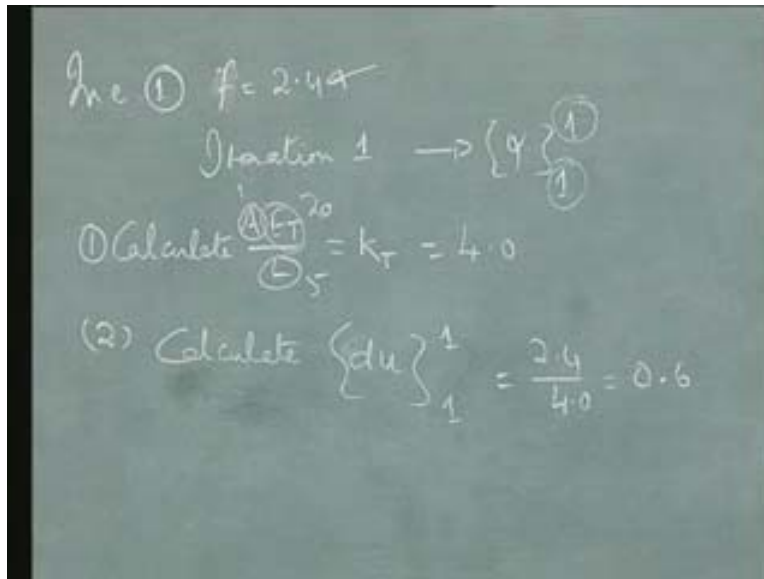 Inc ① f = 2.4
Iteration 1 → {φ}①①
① Calculate A E_T 20 / L 5 = K_T = 4.0
(2) Calculate {du}¹₁ = 2.4 / 4.0 = 0.6